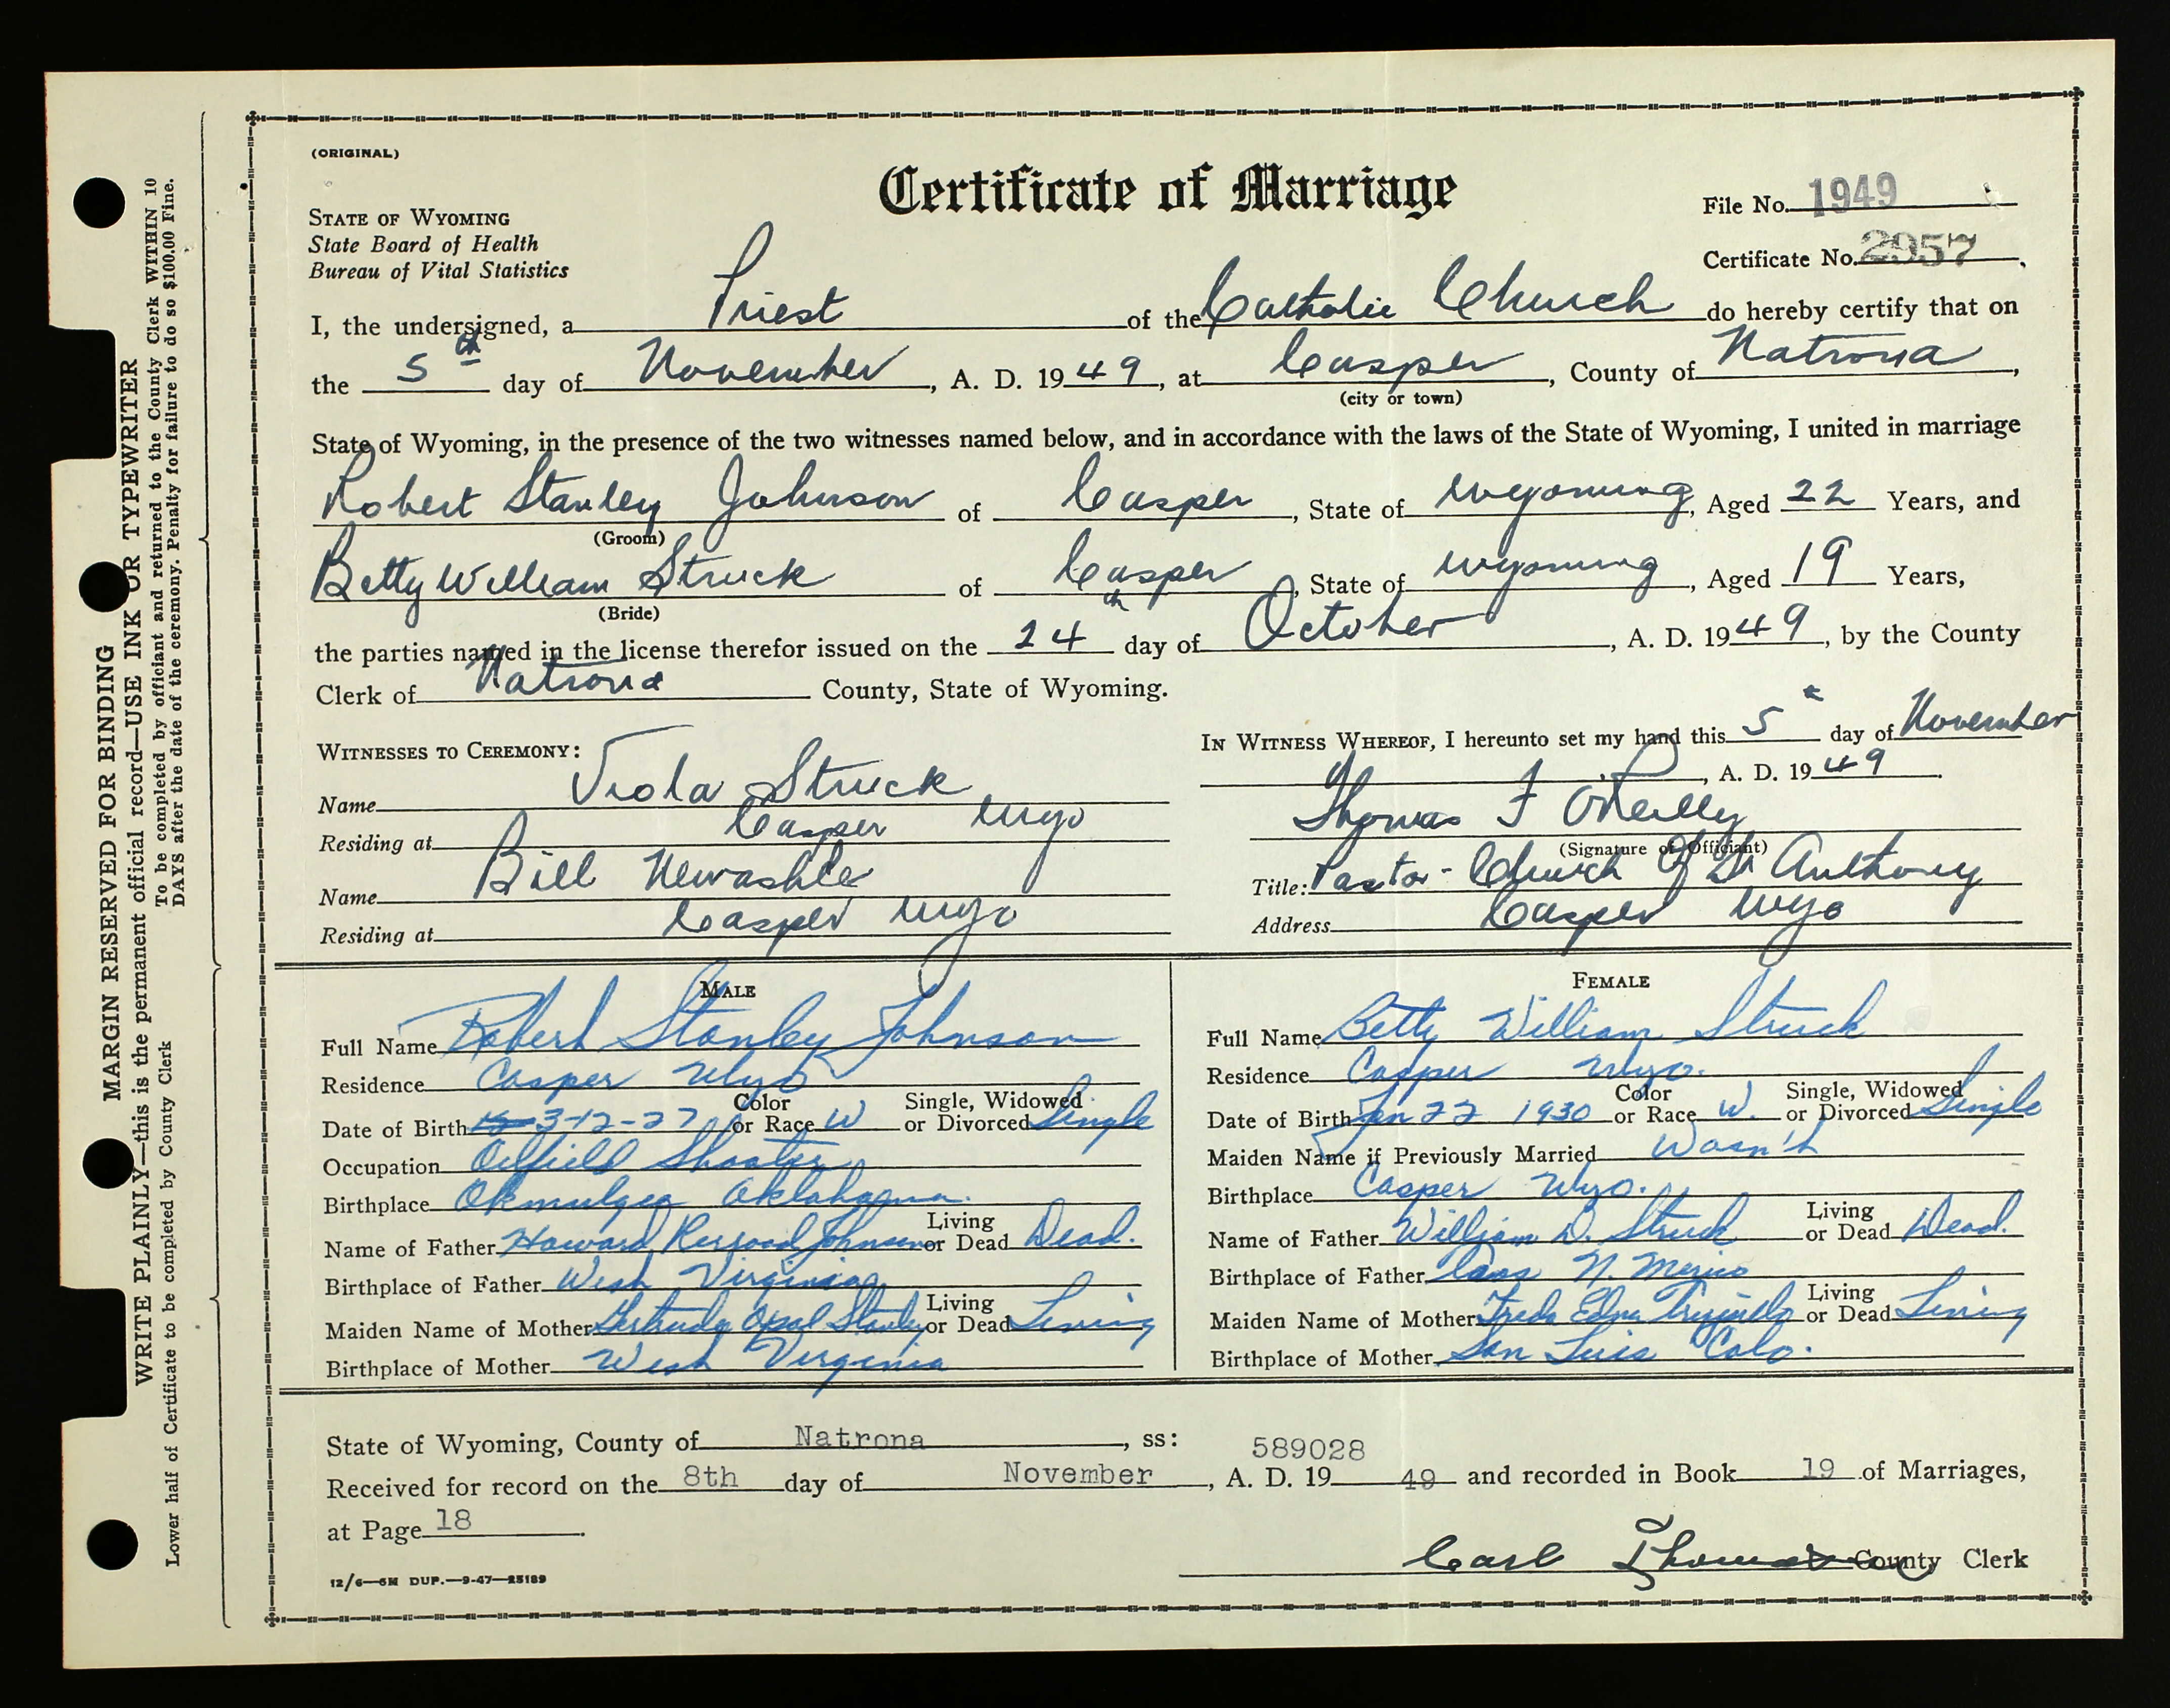 (ORIGINAL)
Certificate of Marriage
STATE OF WYOMING
State Board of Health
Bureau of Vital Statistics
File No. 1949
Certificate No. 2957
I, the undersigned, a Priest of the Catholic Church do hereby certify that on
the 5th day of November, A. D. 1949, at Casper, County of Natrona,
(city or town)
State of Wyoming, in the presence of the two witnesses named below, and in accordance with the laws of the State of Wyoming, I united in marriage
Robert Stanley Johnson of Casper, State of Wyoming, Aged 22 Years, and
(Groom)
Betty William Struck of Casper, State of Wyoming, Aged 19 Years,
(Bride)
the parties named in the license therefor issued on the 24th day of October, A. D. 1949, by the County
Clerk of Natrona County, State of Wyoming.
WITNESSES TO CEREMONY:
Name Viola Struck
Residing at Casper Wyo
Name Bill
Residing at Casper Wyo
IN WITNESS WHEREOF, I hereunto set my hand this 5th day of November
, A. D. 1949.
Thomas F O'Reilly
(Signature of Officiant)
Title: Pastor - Church Of St Anthony
Address Casper Wyo
MALE
Full Name Robert Stanley Johnson
Residence Casper Wyo
Date of Birth 3-12-27 Color or Race W Single, Widowed or Divorced Single
Occupation Oilfield Shooter
Birthplace Okmulgee Oklahoma.
Name of Father Howard Johnson Living or Dead Dead.
Birthplace of Father West Virginia
Maiden Name of Mother Gertrude Opal Stanley Living or Dead Living
Birthplace of Mother West Virginia
FEMALE
Full Name Betty William Struck
Residence Casper Wyo.
Date of Birth Jan 22 1930 Color or Race W. Single, Widowed or Divorced Single
Maiden Name if Previously Married Wasn't
Birthplace Casper Wyo.
Name of Father William D. Struck Living or Dead Dead.
Birthplace of Father Taos N. Mexico
Maiden Name of Mother Freda Edna Trujillo Living or Dead Living
Birthplace of Mother San Luis Colo.
State of Wyoming, County of Natrona, ss:
589028
Received for record on the 8th day of November, A. D. 19 49 and recorded in Book 19 of Marriages,
at Page 18.
Carl Thomas County Clerk
12/6—5M DUP.—9-47—25189
MARGIN RESERVED FOR BINDING
WRITE PLAINLY—this is the permanent official record—USE INK OR TYPEWRITER
To be completed by officiant and returned to the County Clerk WITHIN 10
DAYS after the date of the ceremony. Penalty for failure to do so $100.00 Fine.
Lower half of Certificate to be completed by County Clerk